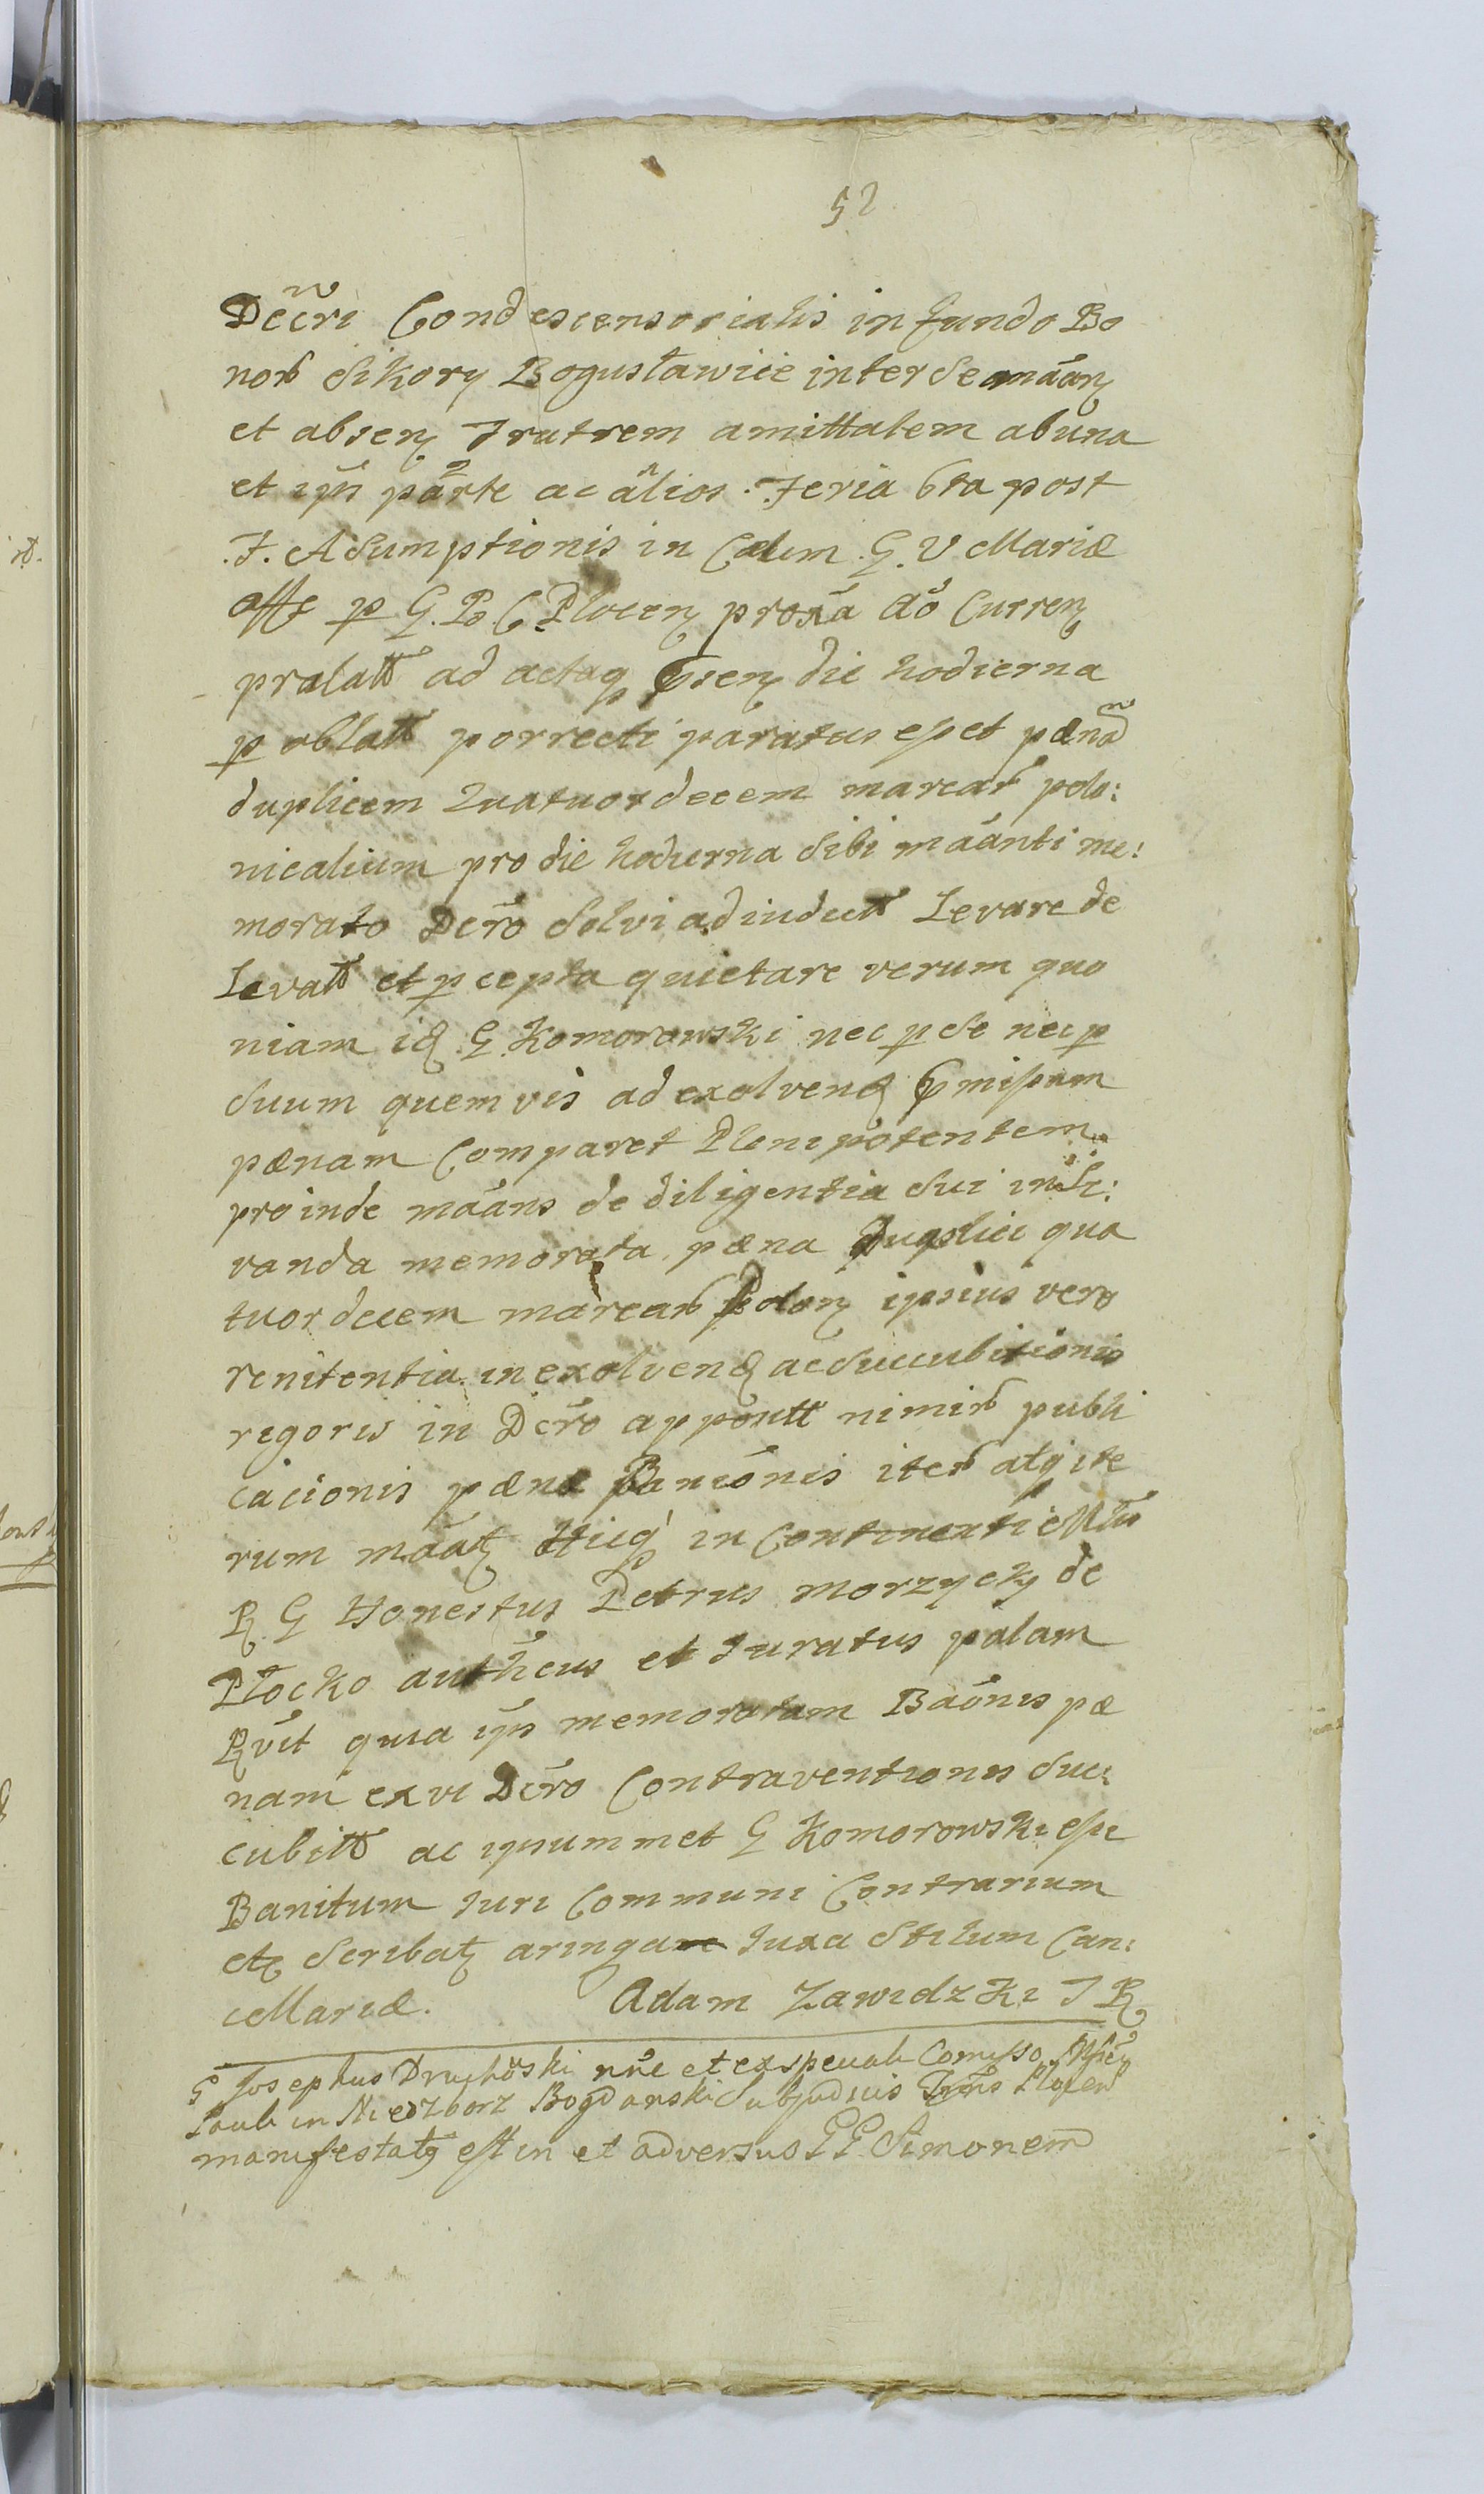 52
Decri Condescensorialis in fundo Bo
norb Sikory Bogusławice inter se maan
et absen Fratrem amittalem ab una
et ips parte ac alios Feria 6ta post
F. Asumptionis in Cælum G. V Mariæ
offe p G. B. C. Plocen proxa Ao Curren
pralatt ad actaq psen die hodierna
p oblatt porrecti paratus esset pænã
duplicem Quatuordecem marcarb polo:
nicalium pro die hodierna sibi maanti me:
morato Dcro Solvi adinductt Levare de
Levatt et pcepta quietare verum quo
niam id G. Komorowski nec p se nec p
suum quemvis ad exolvend pmissam
pænam Comparet Plenipotentem
pro inde maans de diligentia Sui
vanda memorata pæna Duplici qua
tuordecem marcarb Polon ipsius vero
renitentia in exolvend ac succubicionis
regoris in Dcro apposutt nimirb publi
cacionis pænæ Baniõnis iterb atq ite
rum maat Hicq in Continenti Mtus
R. G Honestus Petrus Morzycky de
Płocko authcus et Juratus palam
Rvit quia ips memoratam Baõnis pæ
nam ex vi Dcro Contraventionis Suc:
cubitt ac ipsummet G Komorowski esse
Banitum Juri Communi Contrarium
etc Scribat aringa Juxa Stilum Can:
cellariæ. Adam Zawidzki J R
G Josephus nne et ex speciali Comisso
Pauli in Niedzborz Bogdanski Subjudicis Trris Plocen
manifestats est in et adversus GG Simonem